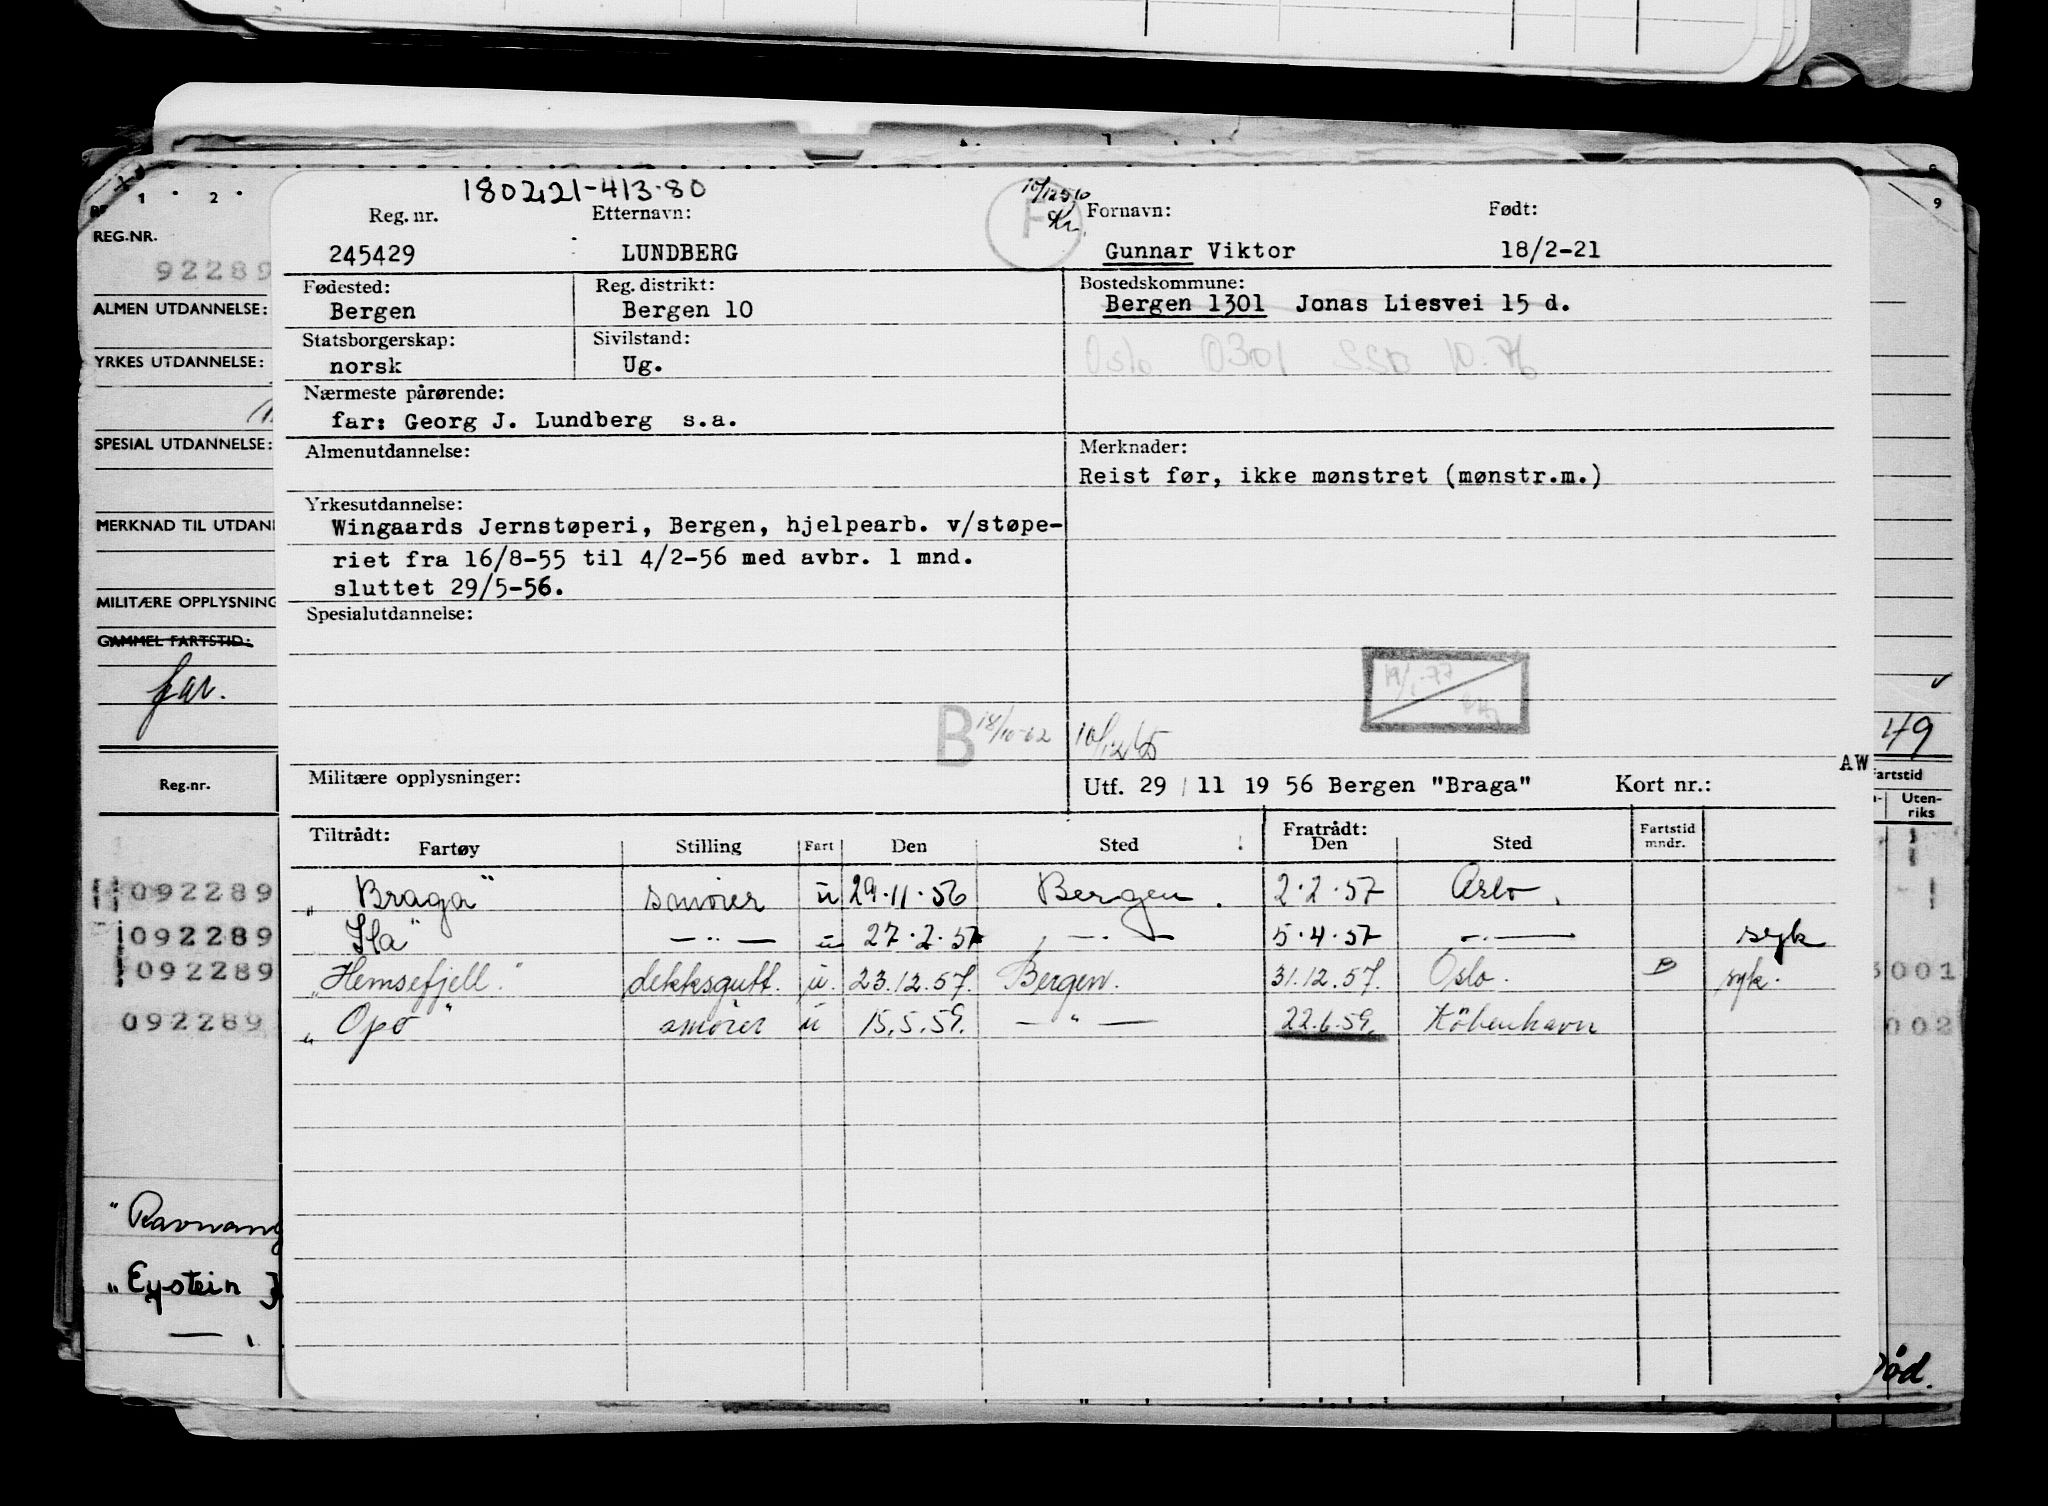 1 2 9
REG.NR.
92289
ALMEN UTDANNELSE:
YRKES UTDANNELSE:
SPESIAL UTDANNELSE:
MERKNAD TIL UTDAN
MILITÆRE OPPLYSNING
GAMMEL FARTSTID:
far.
Reg.nr.
092289
092289
092289
092289
"Ravnang
"Eystein
180221-413.80
Reg. nr. Etternavn: Fornavn: Født:
245429 LUNDBERG F Gunnar Viktor 18/2-21
Fødested: Reg. distrikt: Bostedskommune:
Bergen Bergen 10 Bergen 1301 Jonas Liesvei 15 d.
Statsborgerskap: Sivilstand:
norsk Ug. Oslo 0301 SSD 10.76
Nærmeste pårørende:
far: Georg J. Lundberg s.a.
Almenutdannelse: Merknader:
Reist før, ikke mønstret (mønstr.m.)
Yrkesutdannelse:
Wingaards Jernstøperi, Bergen, hjelpearb. v/støpe-
riet fra 16/8-55 til 4/2-56 med avbr. 1 mnd.
sluttet 29/5-56.
Spesialutdannelse:
B 18/10-62 10/12 65
Militære opplysninger: Utf. 29/11 1956 Bergen "Braga" Kort nr.: AW
Tiltrådt: Fratrådt: Fartstid
Fartøy Stilling Fart Den Sted Den Sted mndr.
"Braga" smører u 29.11.56 Bergen. 2.2.57 Oslo.
"Ila" — " — u 27.2.57 — " — 5.4.57 — " — syk
"Hemsefjell" dekksgutt. u. 23.12.57. Bergen. 31.12.57. Oslo. B syk.
"Opo" smører u 15.5.59. — " — 22.6.59. København
49
artstid
Uten-
riks
001
002
død.